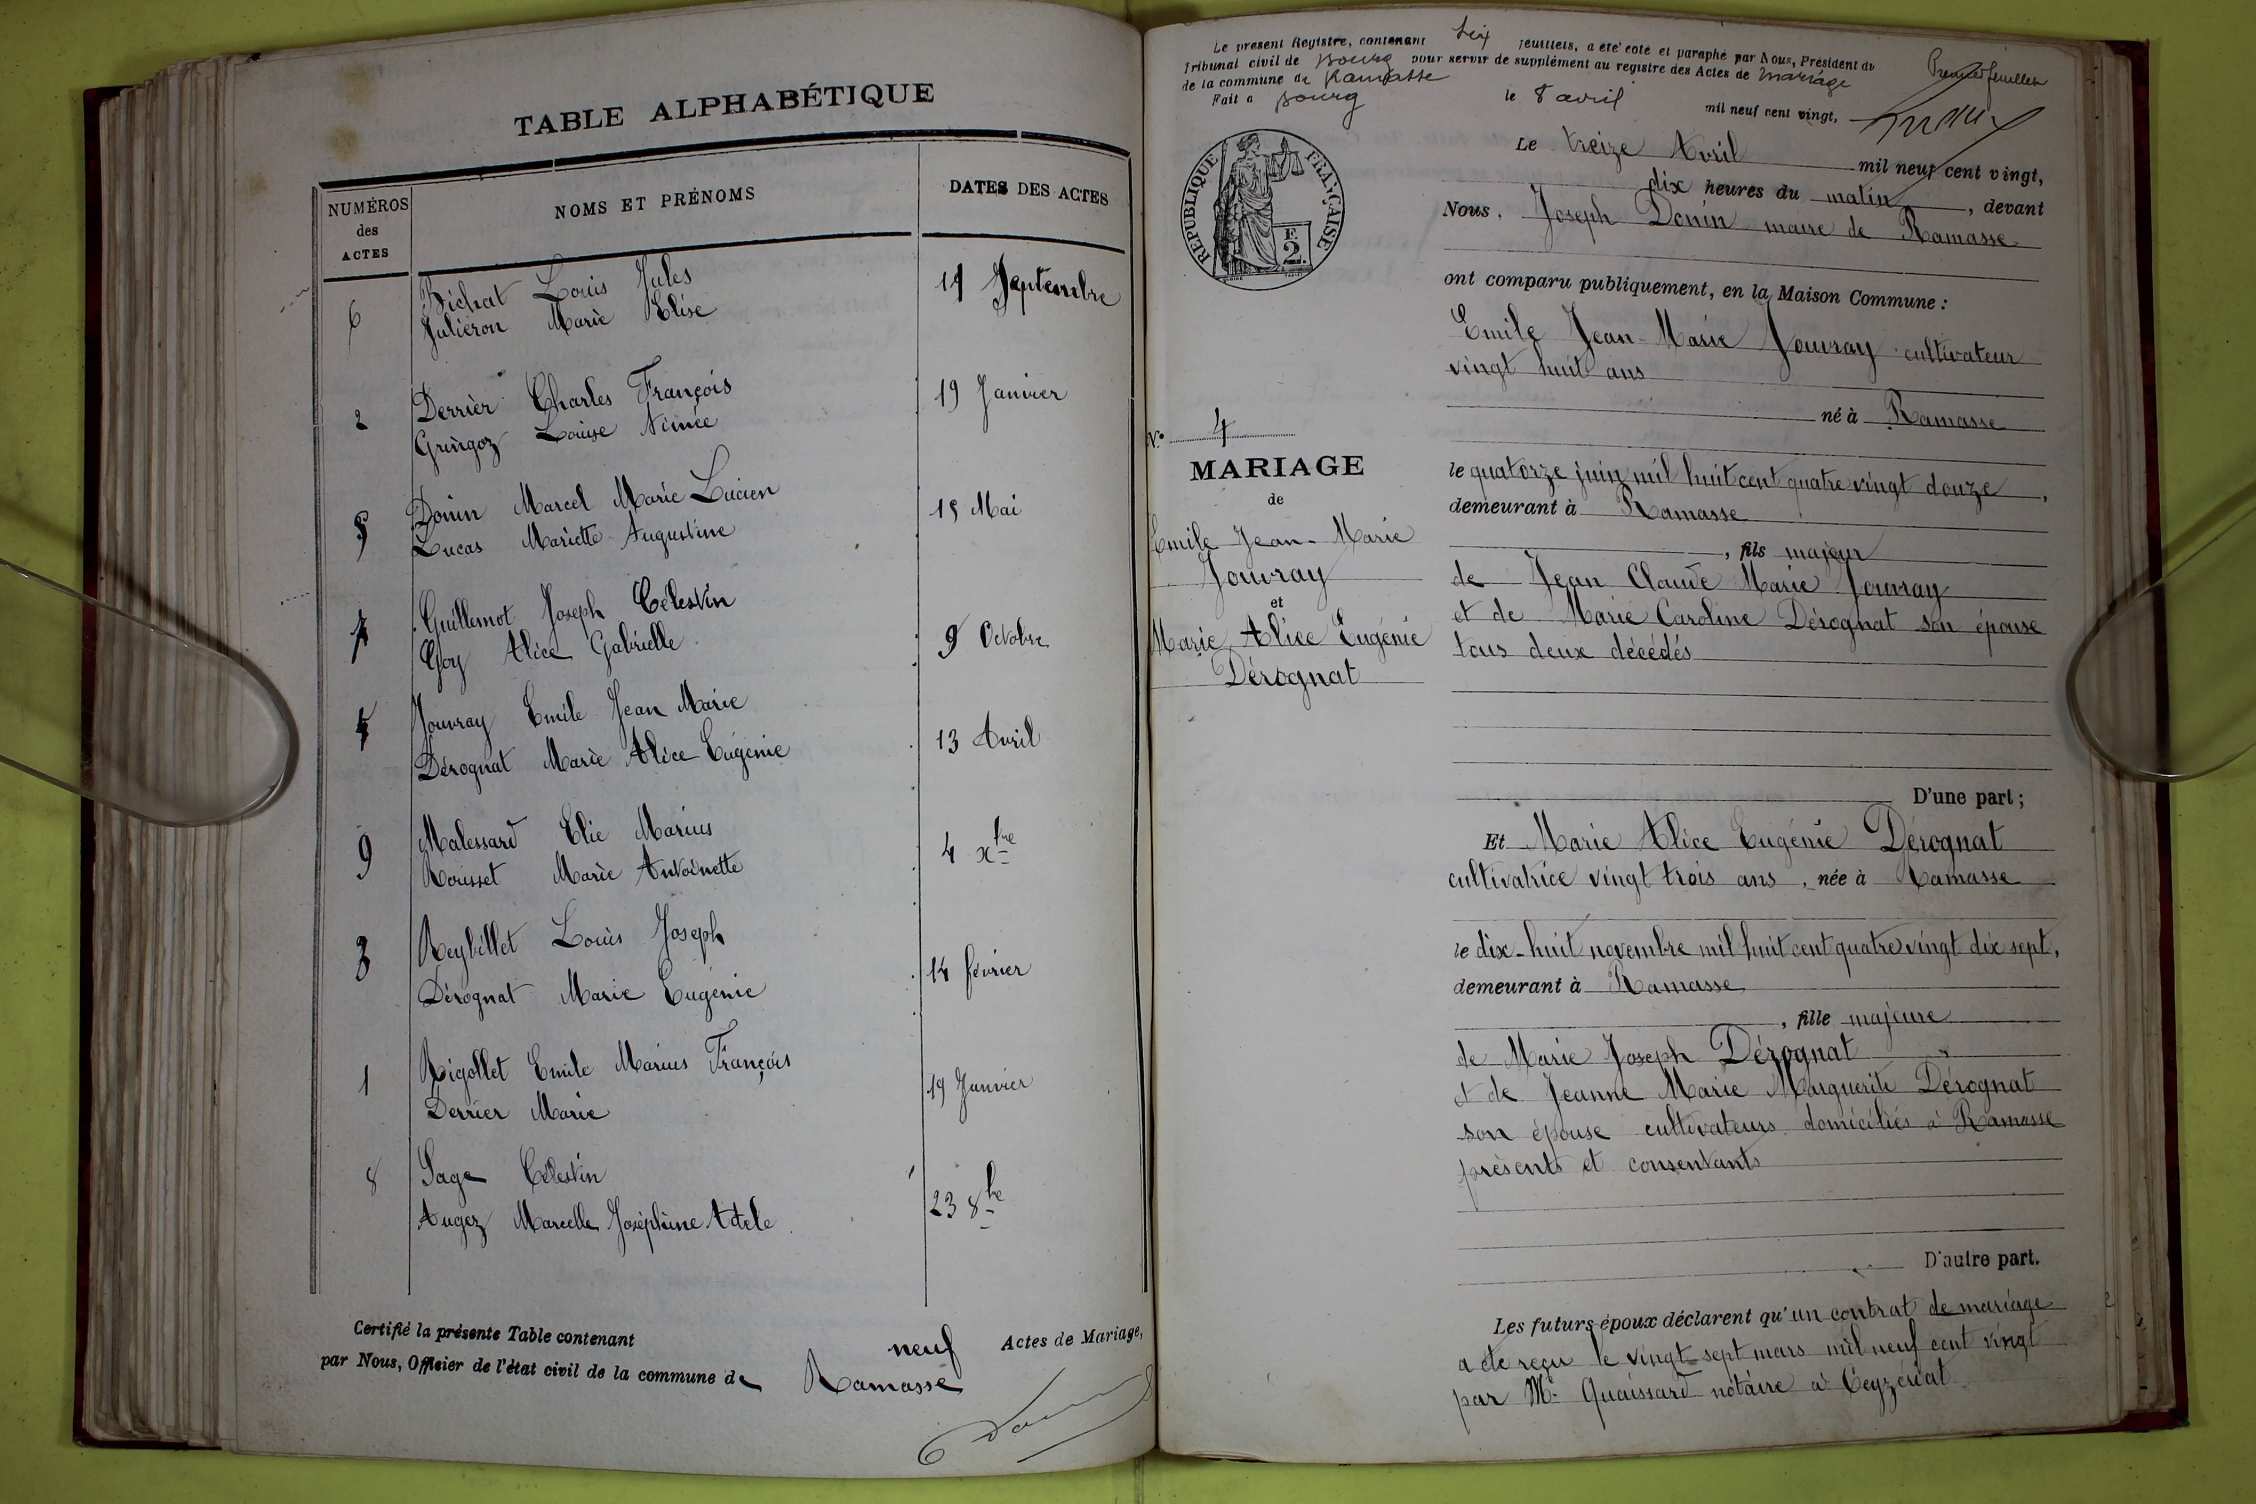 TABLE ALPHABÉTIQUE
NUMÉROS
des
ACTES
NOMS ET PRÉNOMS
DATES DES ACTES
6
Bichat Louis Jules
Juliéron Marie Elise
Septembre
2
Derrier Charles François
Gringoz Louise Aimée
19 Janvier
5
Donin Marcel Marie Lucien
Lucas Mariette Augustine
15 Mai
7
Guillemot Joseph Célestin
Goy Alice Gabrielle
9 Octobre
4
Jouvray Emile Jean Marie
Dérognat Marie Alice Eugénie
13 Avril
9
Malessard Elie Marius
Rousset Marie Antoinette
4 xbre
3
Reybillet Louis Joseph
Dérognat Marie Eugénie
14 février
1
Rigollet Emile Marius François
Derrier Marie
19 Janvier
8
Sage Célestin
Augez Marcelle Joséphine Adele
23 8bre
Certifié la présente Table contenant neuf Actes de Mariage,
par Nous, Officier de l'état civil de la commune de Ramasse
Le present Registre, contenant six feuillets, a été coté et paraphé par Nous, Président du
Tribunal civil de Bourg pour servir de supplément au registre des Actes de mariage
de la commune de Ramasse
Fait a Bourg le 8 avril mil neuf cent vingt,
Premier feuillet
RÉPUBLIQUE FRANÇAISE
F.
2.
Le treize Avril mil neuf cent vingt,
dix heures du matin, devant
Nous. Joseph Donin maire de Ramasse
ont comparu publiquement, en la Maison Commune :
Emile Jean-Marie Jouvray cultivateur
vingt huit ans
né à Ramasse
le quatorze juin mil huit cent quatre vingt douze,
demeurant à Ramasse
, fils majeur
de Jean Claude Marie Jouvray
et de Marie Caroline Dérognat son épouse
tous deux décédés
D'une part ;
N° 4
MARIAGE
de
Emile Jean-Marie
Jouvray
et
Marie Alice Eugénie
Dérognat
Et Marie Alice Eugénie Dérognat
cultivatrice vingt trois ans, née à Ramasse
le dix-huit novembre mil huit cent quatre vingt dix sept,
demeurant à Ramasse
, fille majeure
de Marie Joseph Dérognat
et de Jeanne Marie Marguerite Dérognat
son épouse cultivateurs domiciliés à Ramasse
présents et consentants
D'autre part.
Les futurs époux déclarent qu'un contrat de mariage
a été reçu le vingt-sept mars mil neuf cent vingt
par Me Quaissard notaire à Ceyzériat